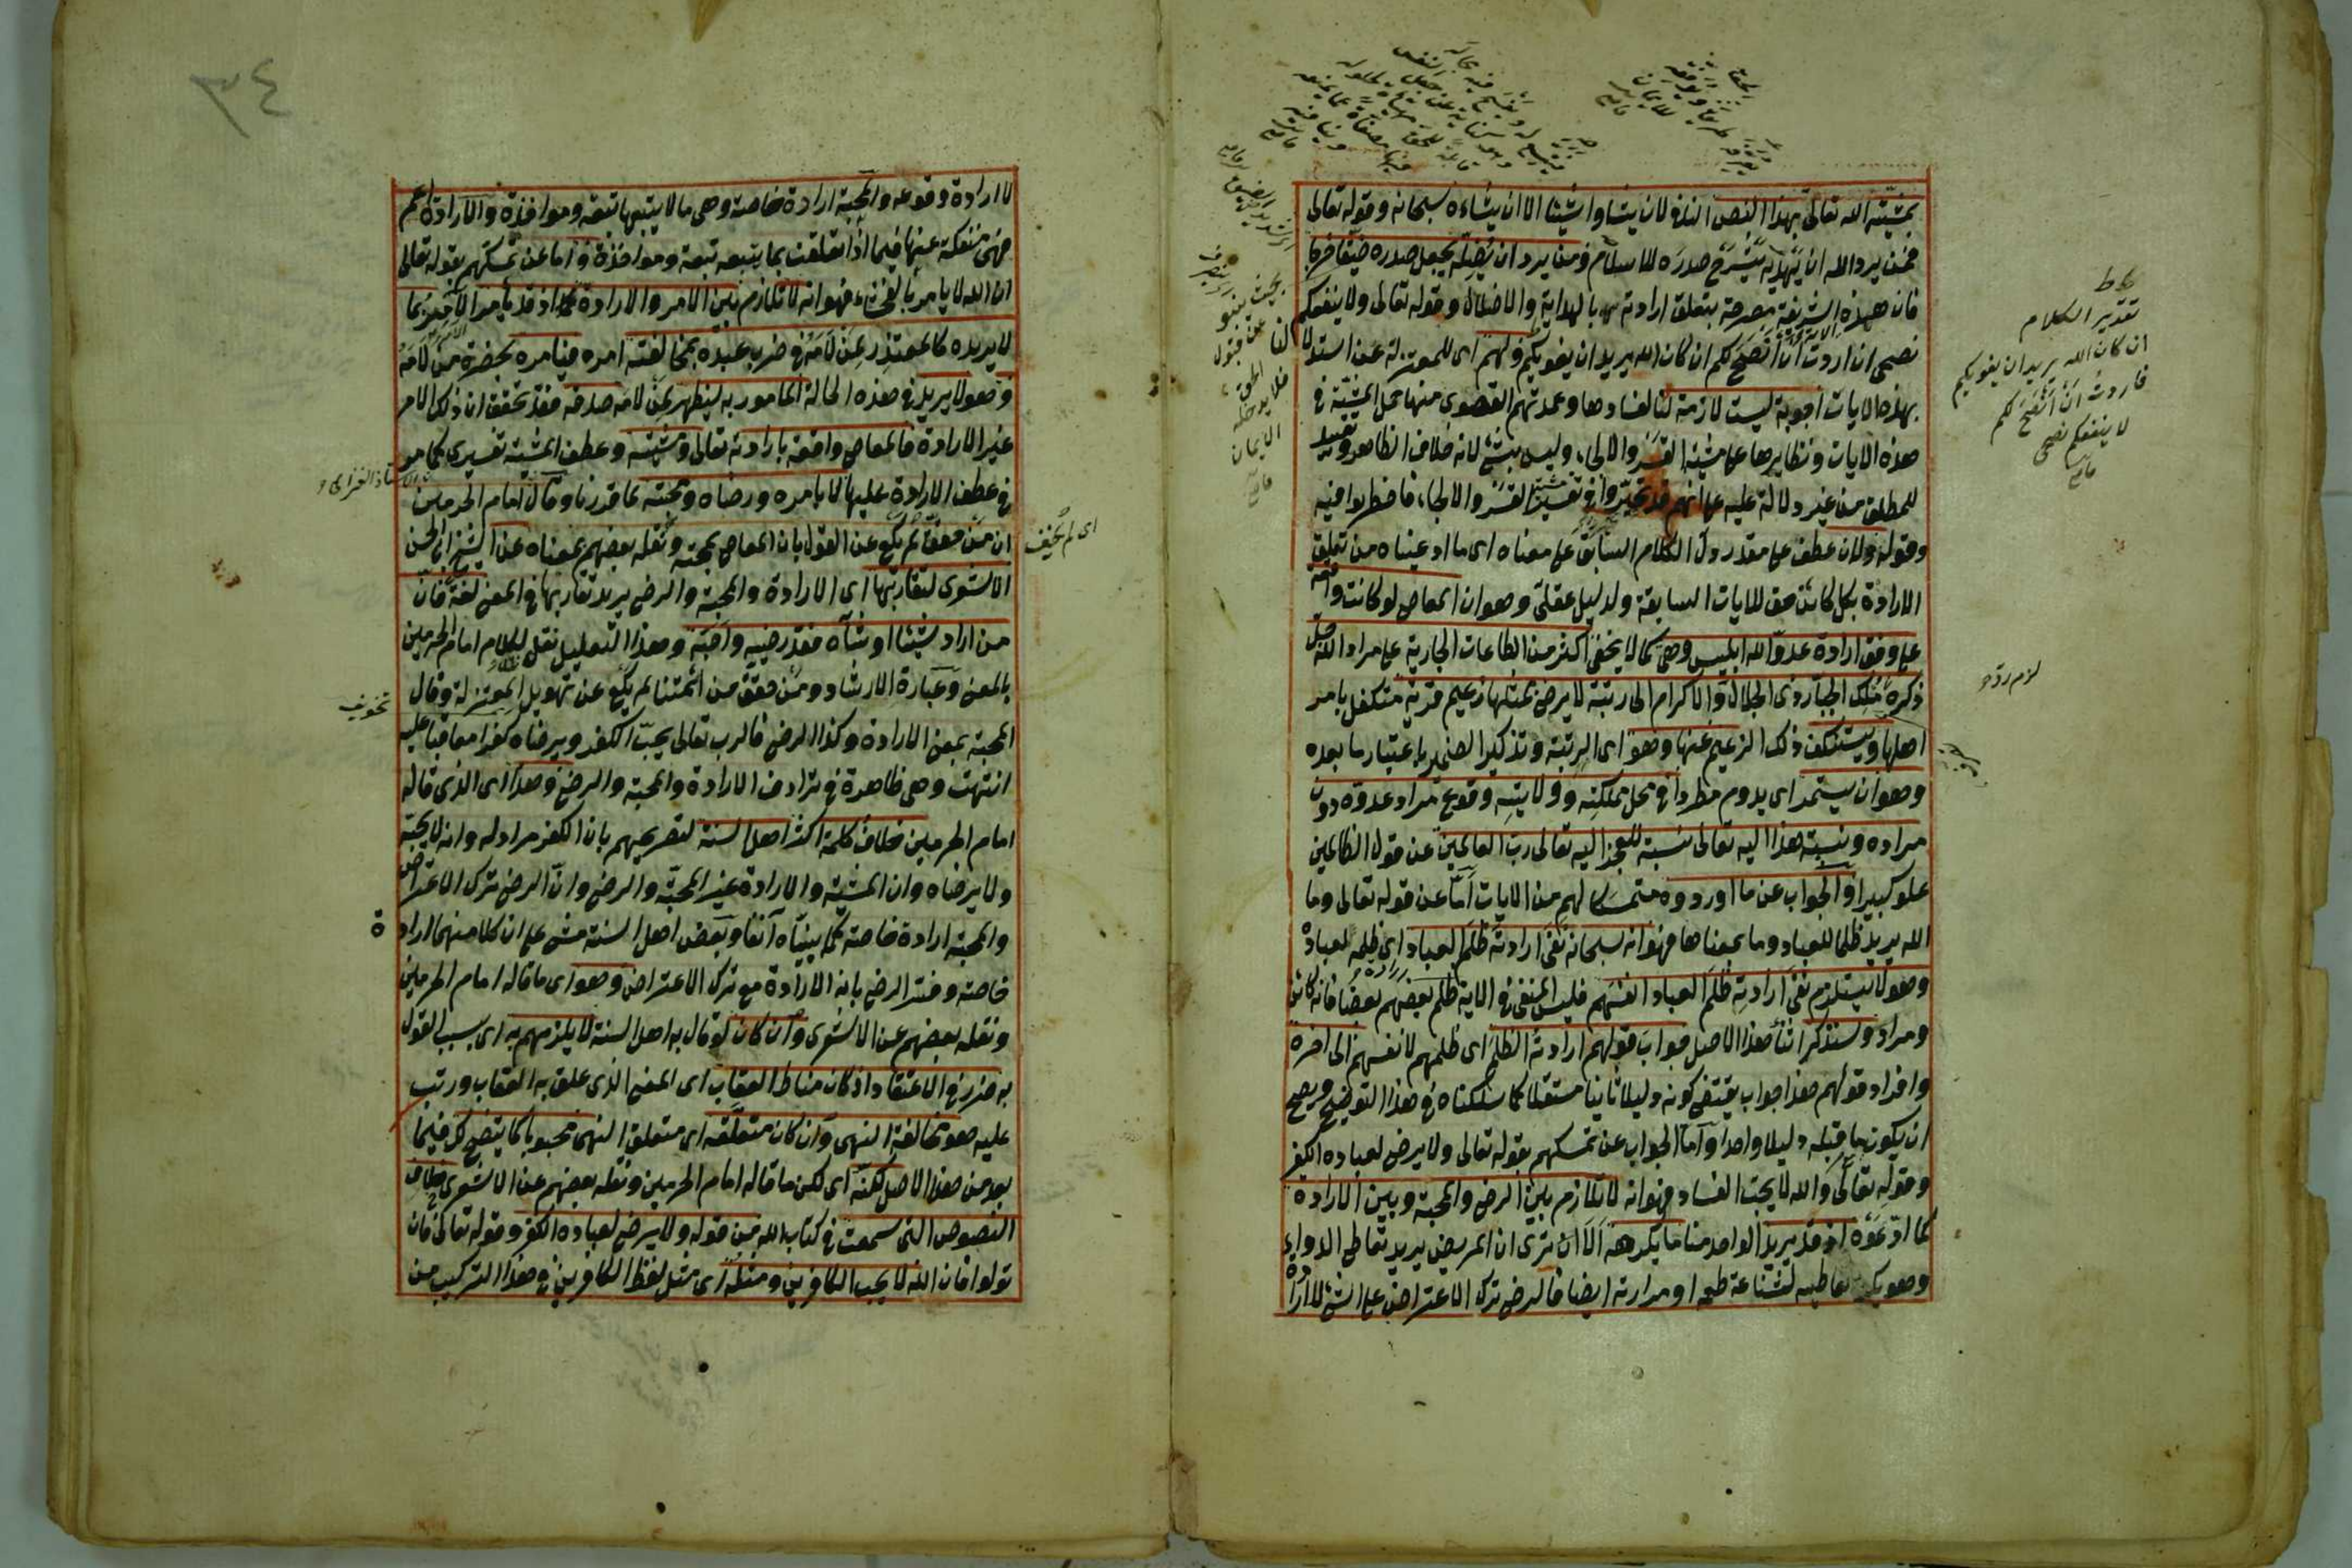 بمشيته الله تعالى بهذا النص النافى لان يشاوا شيئا الا ان يشاءه سبحانه وقوله تعالى
فمن يرد الله ان يهديه يشرح صدره للاسلام ومن يرد ان يضله يجعل صدره ضيقا حرجا
فان هذه الشريفة مصرحة بتعلق ارادته بالهداية والاضلال وقوله تعالى ولا ينفعكم
نصحى ان اردت ان انصح لكم ان كان الله يريد ان يغويكم ولهم اى للمعتزلة عن استدلالنا
بهذه الايات اجوبة ليست لازمة لنا لفسادها وعمدتهم القصوى منها حمل المشيئة فى
هذه الايات ونظايرها على مشيئة القسر والالجاء وليس بشئ لانه خلاف الظاهر وتقييد
للمطلق من غير دلالة عليه على انهم قد تحيروا فى تفسير مشيئة القسر والالجاء فاضطربوا فيه
وقوله ولان عطف على مقدر دل الكلام السابق على معناه اى ما ادعيناه من تعلق
الارادة بكل كائن حق للايات السابقة ولدليل عقلى وهو ان المعاصى لو كانت واقعة
على وفق ارادة عدو الله ابليس وهى كما لا يخفى اكثر من الطاعات الجارية على مراد الله جل
ذكره ملك الجبار ذى الجلال والاكرام الى رتبة لا يرضى بمثلها زعيم قرية متكفل بامر
اهلها ويستنكف ذلك الزعيم عنها وهو اى الرتبة وتذكير الضمير باعتبار ما بعده
وهو ان يستمر اى يدوم مطردا فى محل مملكته وولايته وقوع مراد عدوه دون
مراده ونسبة هذا اليه تعالى نسبة للعجز اليه تعالى رب العالمين عن قول الظالمين
علوا كبيرا والجواب عن ما اوردوه متمسكا لهم من الايات اما عن قوله تعالى وما
الله يريد ظلما للعباد وما بمعناها فهو انه سبحانه نفى ارادته ظلم العباد اى ظلمه لعباده
وهو لا يستلزم نفى ارادته ظلم العباد انفسهم فليس المنفى فى الاية ظلم بعضهم بعضا فانه كائن
ومراد وسنذكر اثناء هذا الاصل جواب قولهم ارادته الظلم اى ظلمهم لانفسهم الى اخره
وافراد قولهم هذا جواب يقتضى كونه دليلا ثانيا مستقلا كما سلكناه فى هذا التوضيح ويصح
ان يكون ما قبله دليلا واحدا واما الجواب عن تمسكهم بقوله تعالى ولا يرضى لعباده الكفر
وقوله تعالى والله لا يحب الفساد فهو انه لا تلازم بين الرضى والمحبة وبين الارادة
كما ادعوه اذ قد يريد الواحد منا ما يكرهه الا ان ترى ان المريض يريد تعاطى الدواء
وهو يكره تعاطيه لشناعة طعمه او مرارته ايضا فالرضى ترك الاعتراض على الشئ لا ارادة
تقدير الكلام
ان كان الله يريد ان يغويكم
فاردت ان انصح لكم
لا ينفعكم نصحى
بحيث ينبو
عن قبول
الحق
فلا يدخله
الايمان
٣٤
لا ارادة وقوعه والمحبة ارادة خاصة وهى ما لا يتبعها تبعة ومواخذة والارادة اعم
فهى منفكة عنها فيما اذا تعلقت بما يتبعه تبعة ومواخذة واما عن تمسكهم بقوله تعالى
ان الله لا يامر بالفحشاء فهو انه لا تلازم بين الامر والارادة كما اذ قد يأمر الآمر بما
لا يريده كالمعتذر عن لامه فى ضرب عبده بمخالفته امره فيامره بحضرة من لامه
وهو لا يريد فى هذه الحالة المامور به ليظهر عن لامه صدقه فقد تحقق ان ذلك الامر
غير الارادة فالمعاصى واقعة بارادته تعالى ومشيئته وعطف المشيئة تفسيرى كما هو
فى عطف الارادة عليها لا بامره ورضاه ومحبته كما قدرنا وقال امام الحرمين
ان من حقق لم يكع عن القول بان المعاصى بمحبته ونقله بعضهم بمعناه عن الشيخ ابى الحسن
الاشعرى لتقاربها اى الارادة والمحبة والرضى يريد تقاربها فى المعنى لغة فان
من اراد شيئا او شآه فقد رضيه واحبه وهذا التعليل نقل لكلام امام الحرمين
بالمعنى وعبارة الارشاد ومن حقق من ائمتنا لم يكع عن تهويل المعتزلة وقال
المحبة بمعنى الارادة وكذا الرضى فالرب تعالى يحب الكفر ويرضاه كفرا معاقبا عليه
انتهت وهى ظاهرة فى ترادف الارادة والمحبة والرضى وهذا اى الذى قاله
امام الحرمين خلاف كلمة اكثر اهل السنة لتصريحهم بان الكفر مراد له وانه لا يحبه
ولا يرضاه وان المشيئة والارادة غير المحبة والرضى وان الرضى ترك الاعتراض
والمحبة ارادة خاصة كما بيناه آنفا وبعض اهل السنة مشى على ان كلا منهما ارادة
خاصة وفسر الرضى بانه الارادة مع ترك الاعتراض وهو اى ما قاله امام الحرمين
ونقله بعضهم عن الاشعرى وان كان لو قال به اهل السنة لا يلزمهم به اى بسبب القول
به ضرر فى الاعتقاد اذ كان مناط العقاب اى المعنى الذى علق به العقاب ورتب
عليه هو مخالفة النهى وان كان متعلقه اى متعلق النهى محبوبا كما يتضح لك فيما
بعد من هذا الاصل لكنه اى لكن ما قاله امام الحرمين ونقله بعضهم عن الاشعرى خلاف
النصوص التى سمعت فى كتاب الله من قوله ولا يرضى لعباده الكفر وقوله تعالى فان
تولوا فان الله لا يحب الكافرين ومثله اى مثل لفظ الكافرين فى هذا التركيب من
اى لم يخف
تخويف